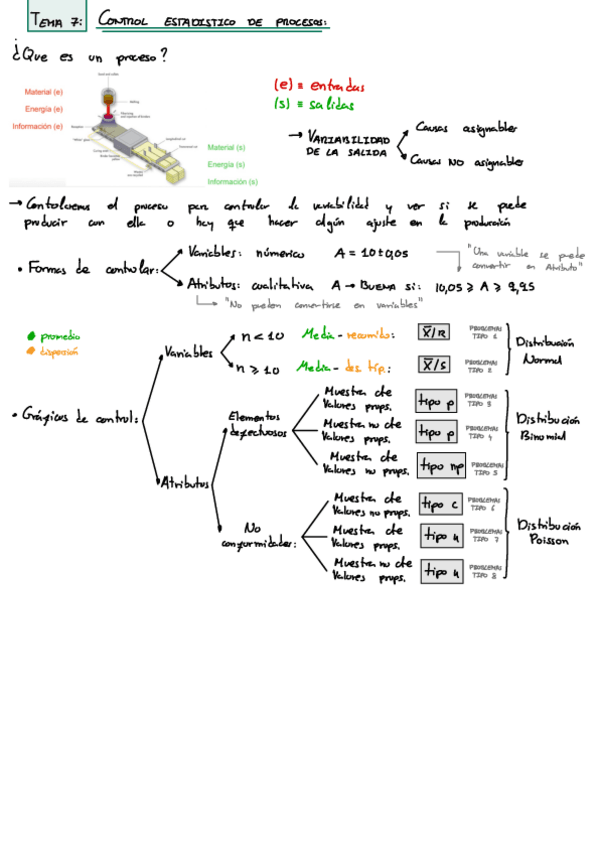 TEMA 7: CONTROL ESTADISTICO DE PROCESOS:
¿Que es un proceso?
Material (e)
Energía (e)
Información (e)
Material (s)
Energía (s)
Información (s)
(e) ≡ entradas
(s) ≡ salidas
→ VARIABILIDAD DE LA SALIDA
Causas asignables
Causas NO asignables
→ Controlamos el proceso para controlar la variabilidad y ver si se puede
producir con ella o hay que hacer algún ajuste en la producción
• Formas de controlar:
Variables: númerico A = 10 ± 0,05
"Una variable se puede convertir en Atributo"
Atributos: cualitativa A → BUENA si: 10,05 ⩾ A ⩾ 9,95
"No pueden convertirse en variables"
promedio
dispersión
• Gráficos de control:
Variables
n < 10 Media - recorrido: X̅/R PROBLEMAS TIPO 1
n ⩾ 10 Media - des. típ.: X̅/S PROBLEMAS TIPO 2
Distribución Normal
Atributos
Elementos defectuosos
Muestra cte Valores props. tipo p PROBLEMAS TIPO 3
Muestra no cte Valores props. tipo p PROBLEMAS TIPO 4
Muestra cte Valores no props. tipo np PROBLEMAS TIPO 5
Distribución Binomial
No conformidades:
Muestra cte Valores no props. tipo c PROBLEMAS TIPO 6
Muestra cte Valores props. tipo u PROBLEMAS TIPO 7
Muestra no cte Valores props. tipo u PROBLEMAS TIPO 8
Distribución Poisson